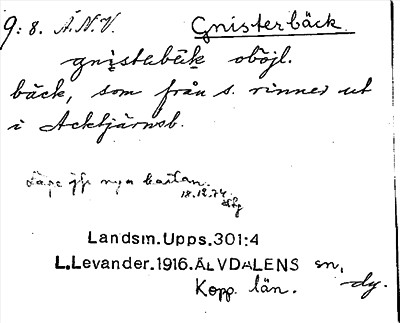 9:8. Ä.N.V. Gnisterbäck
gnistebäk oböjl.
bäck, som från s. rinner ut
i Acktjärnsb.
Läge jfr nya kartan.
18.12.74
Landsm.Upps.301:4
L.Levander.1916.ÄLVDALENS sn,
Kopp. län. dy.